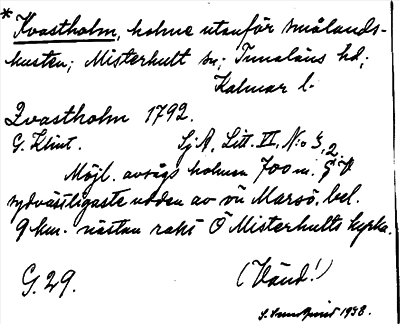 * Kvastholm, holme utanför smålands-
kusten; Misterhult sn; Tunaläns hd;
Kalmar l.
Qvastholm 1792.
G. Klint. SjA, Litt. VI, N:o 3,
Möjl. avsågs holmen 700 m.
sydvästligaste udden av ön Marsö, bel.
9 km. nästan rakt Ö Misterhults kyrka.
G. 29. (Vänd!)
S. Sundqvist 1938.